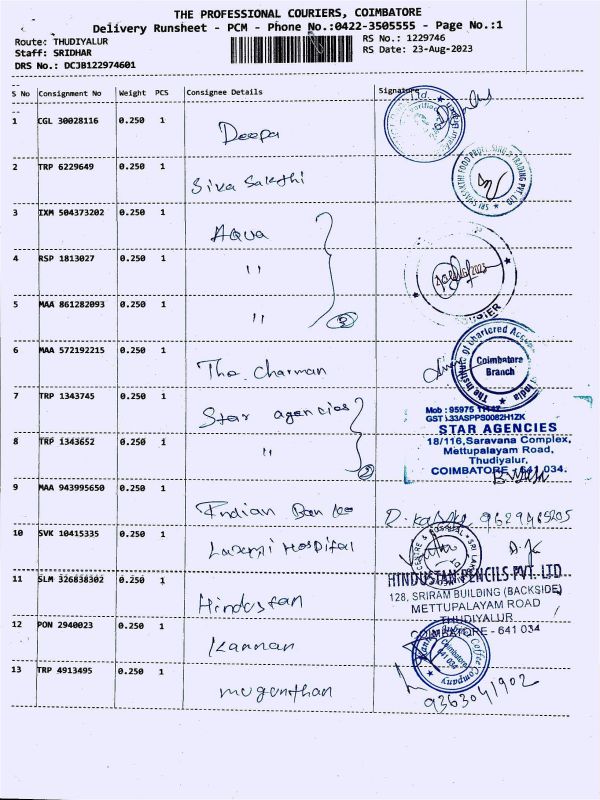 THE PROFESSIONAL COURIERS, COIMBATORE
Delivery Runsheet - PCM - Phone No.:0422-3505555 - Page No.:1
Route: THUDIYALUR
RS No.: 1229746
Staff: SRIDHAR
RS Date: 23-Aug-2023
DRS No.: DCJB122974601
S No Consignment No Weight PCS Consignee Details Signature
1 CGL 30028116 0.250 1 Deepa
2 TRP 6229649 0.250 1 Siva Sakthi
SRI SIVASAKTHI FOOD PROCESSING & TRADING PVT. LTD
3 IXM 504373202 0.250 1 Aqua
4 RSP 1813027 0.250 1 "
5 MAA 861282093 0.250 1 " 3
6 MAA 572192215 0.250 1 The Charman
The Institute of Chartered Accou India
Coimbatore
Branch
7 TRP 1343745 0.250 1 Star agencies
8 TRP 1343652 0.250 1 " 2
Mob : 95975
STAR AGENCIES
18/116,Saravana Complex,
Mettupalayam Road,
Thudiyalur,
COIMBATORE - 641 034.
9 MAA 943995650 0.250 1 Indian Bank
10 SVK 10415335 0.250 1 Laxmi Hospital
11 SLM 326838302 0.250 1 Hindustan
HINDUSTAN PENCILS PVT. LTD
128, SRIRAM BUILDING (BACKSIDE)
METTUPALAYAM ROAD
THUDIYALUR
COIMBATORE - 641 034
12 PON 2940023 0.250 1 Kannan
Coffee Company
Coimbatore
641 034
13 TRP 4913495 0.250 1 muganthan
9363041902